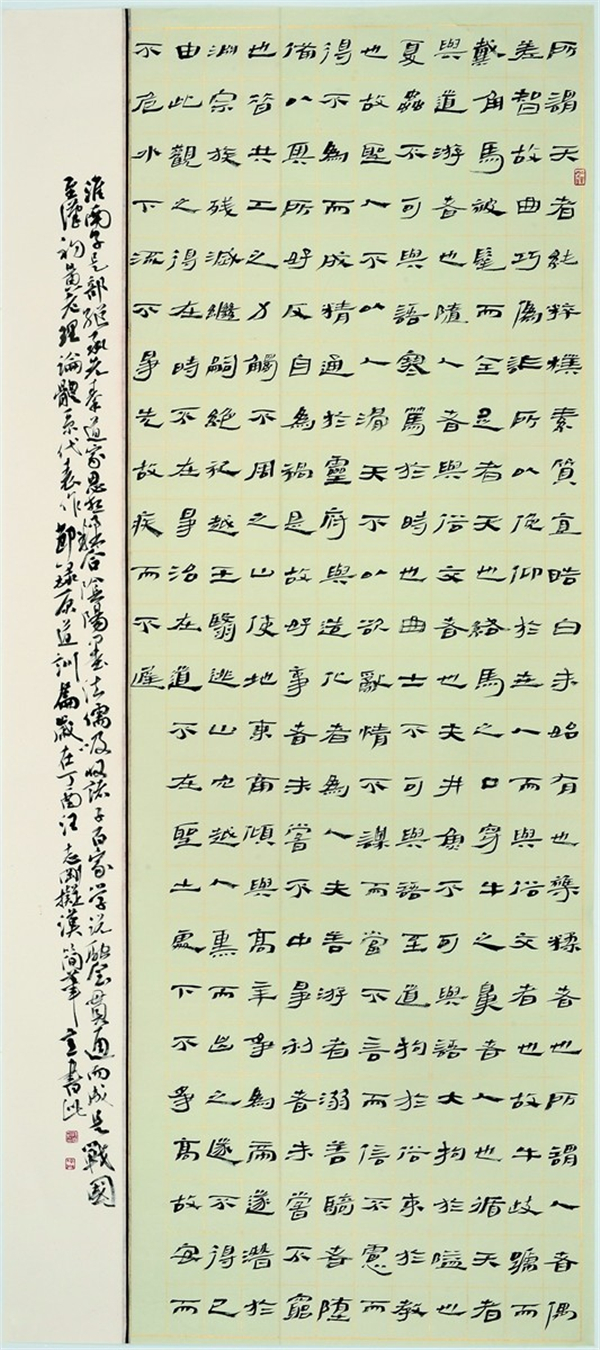 所謂天者純粹樸素質直皓白未始有也雜糅者也所謂人者偶
差智故曲巧偽詐所以俛仰於世人而與俗交者也故牛歧蹏而
戴角馬被髦而全足者天也絡馬之口穿牛之鼻者人也循天者
與道游者也隨人者與俗交者也夫井魚不可與語大拘於隘也
夏蟲不可與語寒篤於時也曲士不可與語至道拘於俗束於教
也故聖人不以人滑天不以欲亂情不謀而當不言而信不慮而
得不為而成精通於靈府與造化者為人夫善游者溺善騎者墮
備以其所好反自為禍是故好事者未嘗不中爭利者未嘗不窮
也昔共工之力觸不周之山使地東南傾與高辛爭為帝遂潛於
淵宗族殘滅繼嗣絕祀越王翳逃山穴越人熏而出之遂不得已
由此觀之得在時不在爭治在道不在聖土處下不爭高故安而
不危水下流不爭先故疾而不遲
淮南子是部繼承先秦道家思想糅合陰陽墨法儒吸收諸子百家学说融会貫通而成是戰國
至漢初黃老理論體系代表作節錄原道訓篇歲在丁酉汪志剛擬漢簡筆意書此